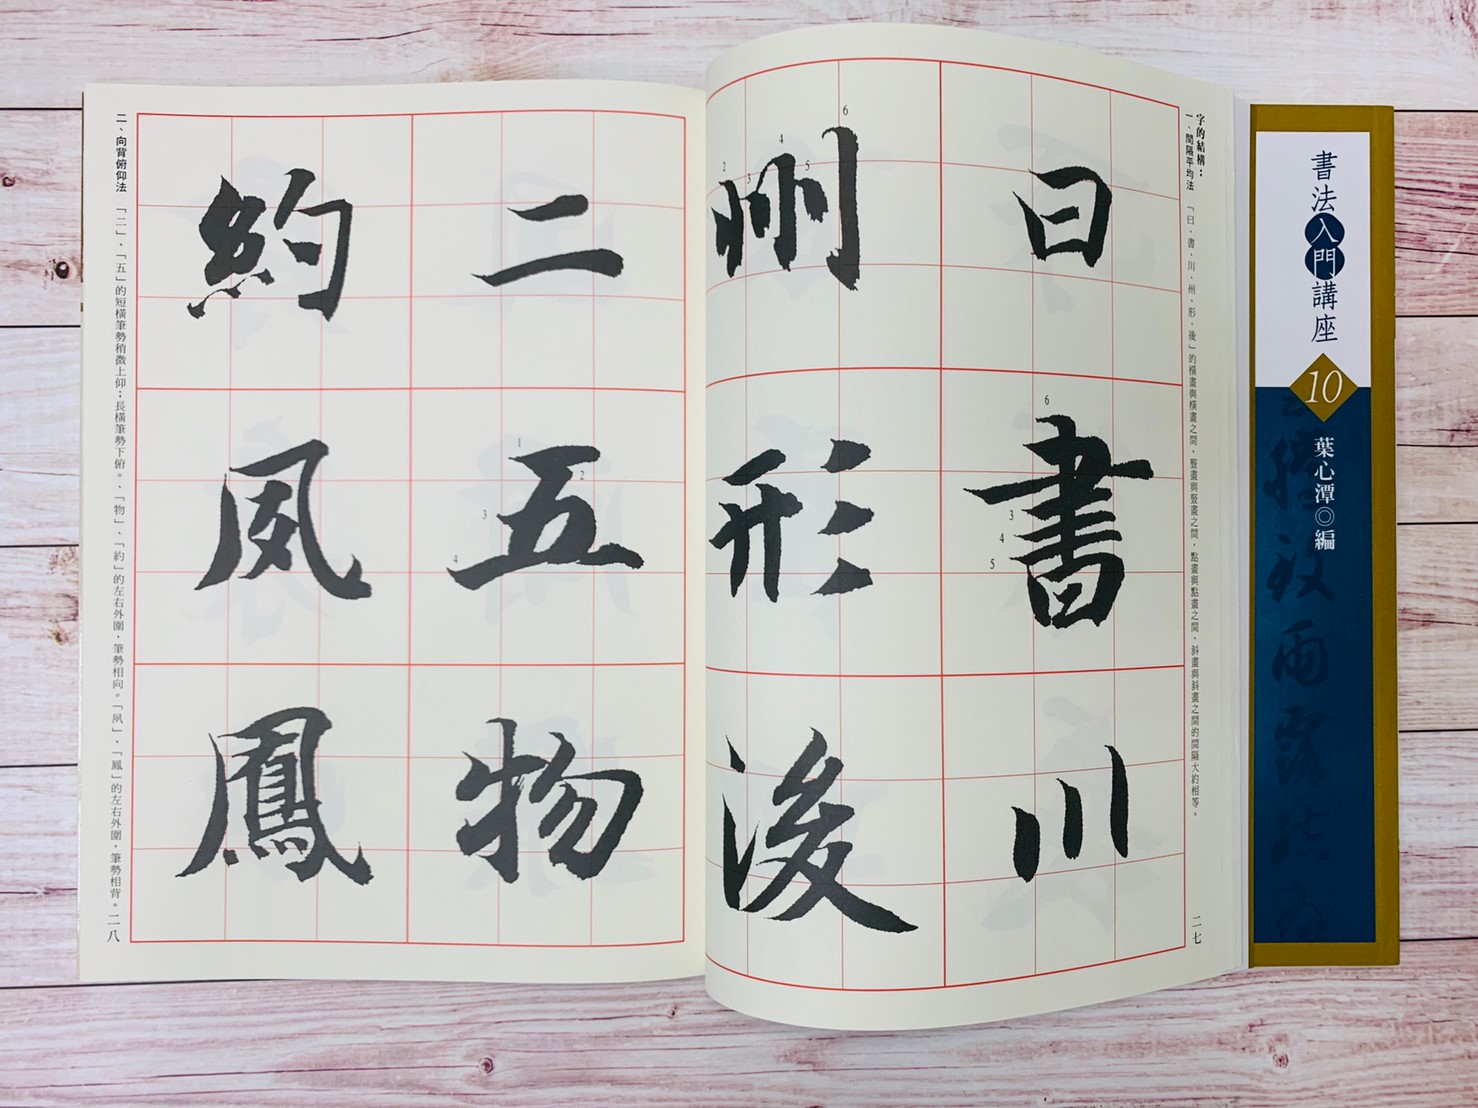 書法入門講座
10
葉心潭◎編
字的結構：
一、間隔平均法 「曰、書、川、州、形、後」的橫畫與橫畫之間，豎畫與豎畫之間，點畫與點畫之間，斜畫與斜畫之間的間隔大約相等。
二七
曰
書
6
3
4
5
川
州
6
4
2
3
5
形
後
二
五
1
2
3
4
物
約
夙
鳳
二、向背俯仰法 「二」、「五」的短橫筆勢稍微上仰；長橫筆勢下俯。、「物」、「約」的左右外圍，筆勢相向。「夙」、「鳳」的左右外圍，筆勢相背。
二八